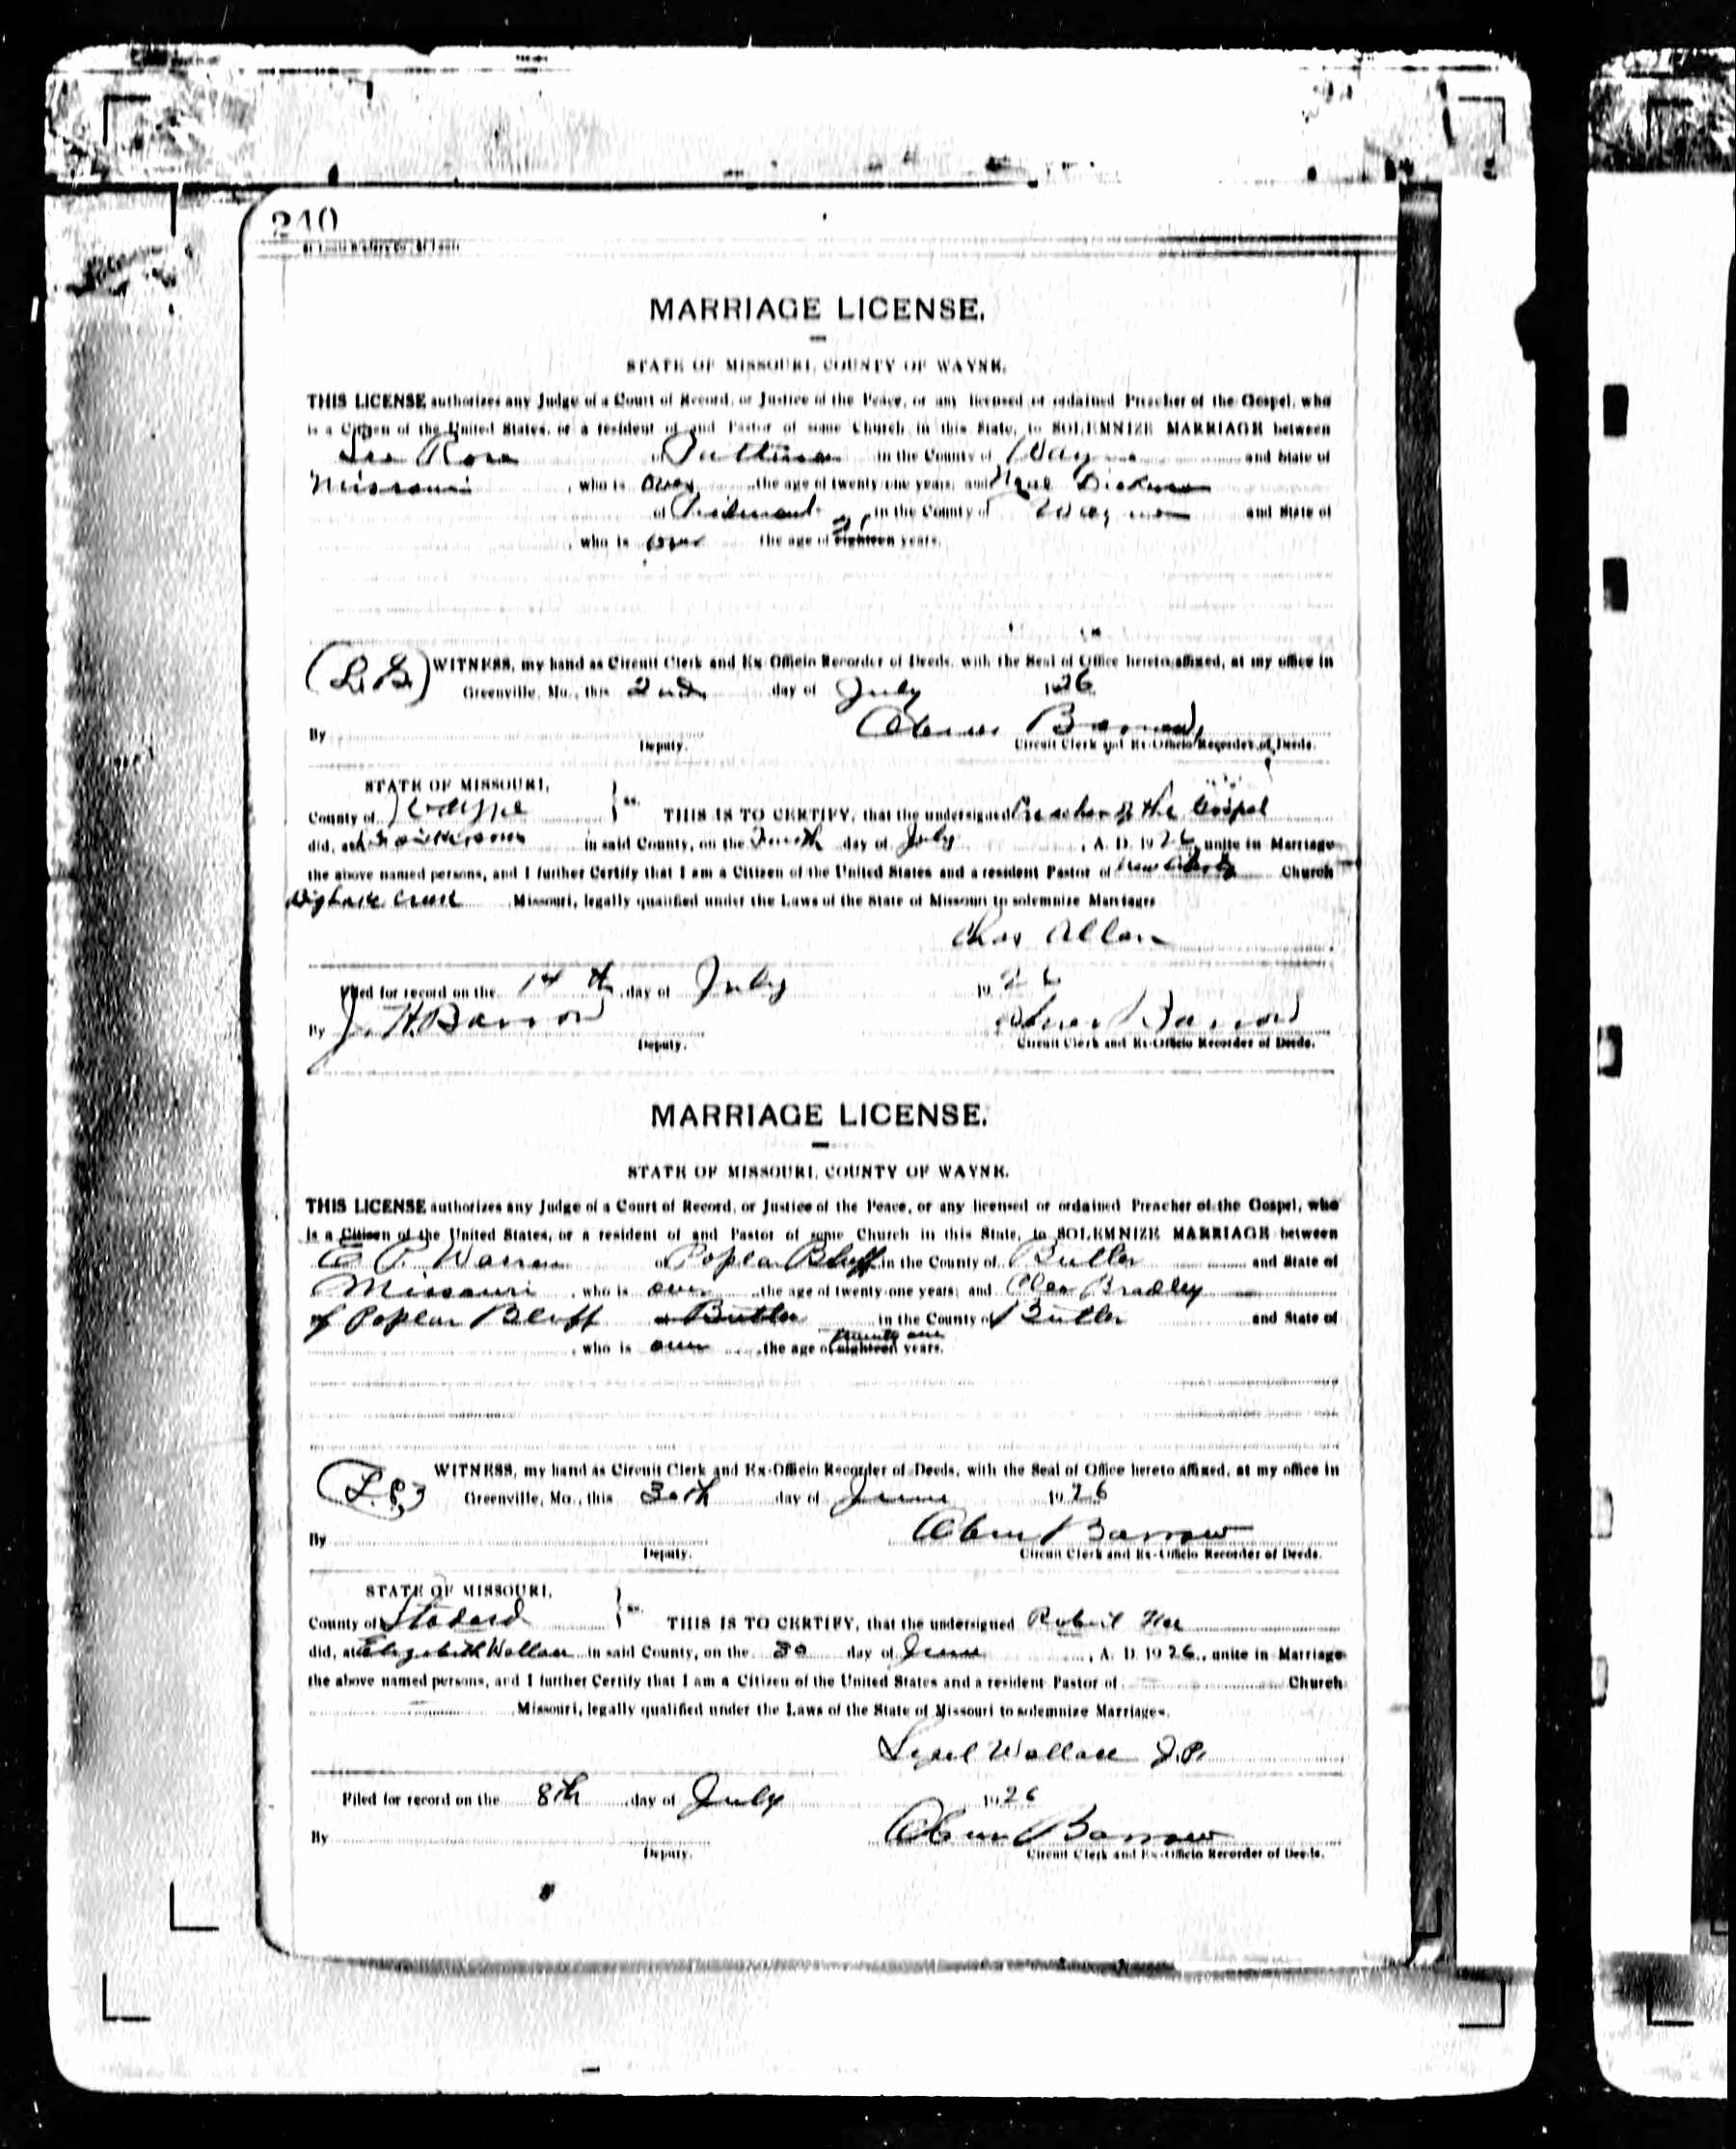 240
MARRIAGE LICENSE.
STATE OF MISSOURI, COUNTY OF WAYNE.
THIS LICENSE authorizes any Judge of a Court of Record, or Justice of the Peace, or any licensed or ordained Preacher of the Gospel, who
is a Citizen of the United States, or a resident of and Pastor of some Church in this State, to SOLEMNIZE MARRIAGE between
of in the County of Wayne and State of
Missouri, who is over the age of twenty-one years; and
of Piedmont in the County of Wayne and State of
21
, who is over the age of eighteen years.
WITNESS, my hand as Circuit Clerk and Ex-Officio Recorder of Deeds, with the Seal of Office hereto affixed, at my office in
Greenville, Mo., this 2nd day of July 1926
By Abner Barrow
Deputy. Circuit Clerk and Ex-Officio Recorder of Deeds.
STATE OF MISSOURI,
County of Wayne } ss. THIS IS TO CERTIFY, that the undersigned Preacher of the Gospel
did, at in said County, on the day of July, A. D. 1926, unite in Marriage
the above named persons, and I further Certify that I am a Citizen of the United States and a resident Pastor of New Liberty Church
Missouri, legally qualified under the Laws of the State of Missouri to solemnize Marriages
Chas Allen
Filed for record on the 14th day of July 1926
By J. H. Barrow Abner Barrow
Deputy. Circuit Clerk and Ex-Officio Recorder of Deeds.
MARRIAGE LICENSE.
STATE OF MISSOURI, COUNTY OF WAYNE.
THIS LICENSE authorizes any Judge of a Court of Record, or Justice of the Peace, or any licensed or ordained Preacher of the Gospel, who
is a Citizen of the United States, or a resident of and Pastor of some Church in this State, to SOLEMNIZE MARRIAGE between
E. P. Warren of Poplar Bluff in the County of Butler and State of
Missouri, who is over the age of twenty-one years; and Bradley
of Poplar Bluff of Butler in the County of Butler and State of
twenty one
, who is over the age of eighteen years.
WITNESS, my hand as Circuit Clerk and Ex-Officio Recorder of Deeds, with the Seal of Office hereto affixed, at my office in
Greenville, Mo., this 30th day of June 1926
By Abner Barrow
Deputy. Circuit Clerk and Ex-Officio Recorder of Deeds.
STATE OF MISSOURI,
County of Stodard } ss. THIS IS TO CERTIFY, that the undersigned Robert
did, at Elizabeth Wallace in said County, on the 30 day of June, A. D. 1926, unite in Marriage
the above named persons, and I further Certify that I am a Citizen of the United States and a resident Pastor of Church
Missouri, legally qualified under the Laws of the State of Missouri to solemnize Marriages.
Wallace J.P.
Filed for record on the 8th day of July 1926
By Abner Barrow
Deputy. Circuit Clerk and Ex-Officio Recorder of Deeds.